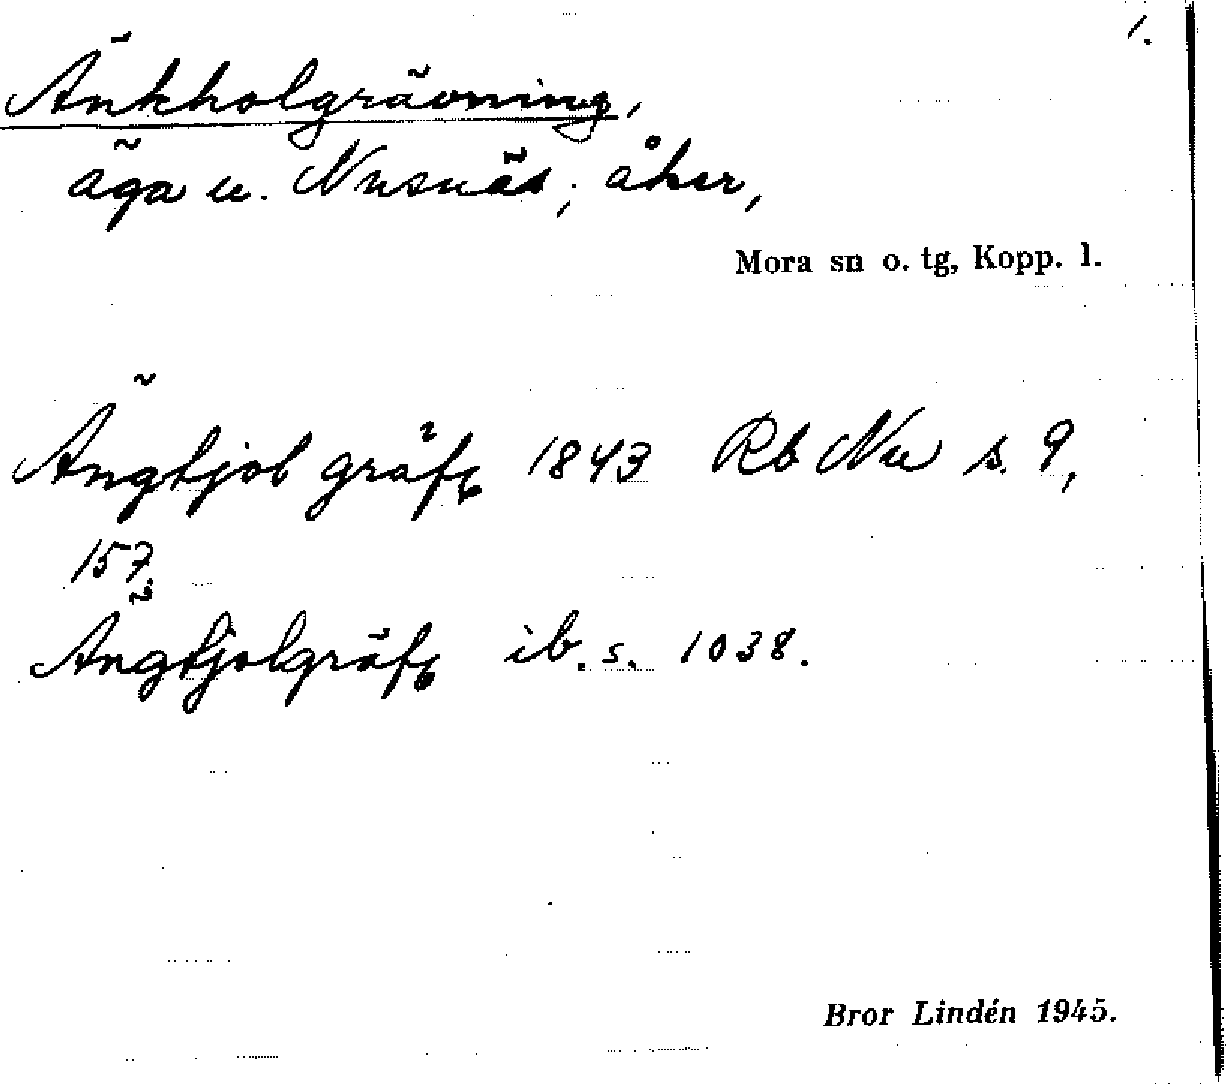 1.
Änkholgrävning,
äga u. Nusnäs; åker,
Mora sn o. tg, Kopp. l.
Ängkjol gräfg 1843 Rb Nu s. 9,
157.
Ängkjolgräfg ib. s. 1038.
Bror Lindén 1945.